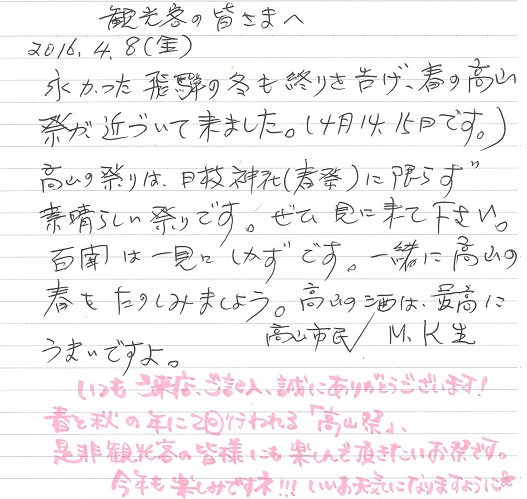 観光客の皆さまへ
2016.4.8(金)
永かった飛騨の冬も終りを告げ、春の高山
祭が近づいて来ました。(4月14.15日です。)
高山の祭りは、日枝神社(春祭)に限らず
素晴らしい祭りです。ぜひ見に来て下さい。
百聞は一見にしかずです。一緒に高山の
春をたのしみましょう。高山の酒は、最高に
うまいですよ。
高山市民/M.K生
いつもご来店、ご記入、誠にありがとうございます!
春と秋の年に2回行われる「高山祭」、
是非観光客の皆様にも楽しんで頂きたいお祭です。
今年も楽しみですネ!!!いいお天気になりますように*